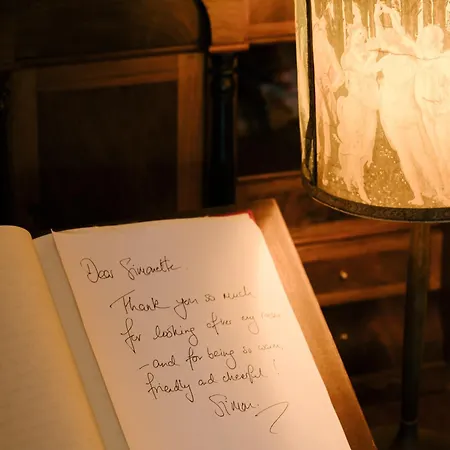 Dear Simonette.
Thank you so much
for looking after my
– and for being so warm
friendly and cheerful!
Simon.